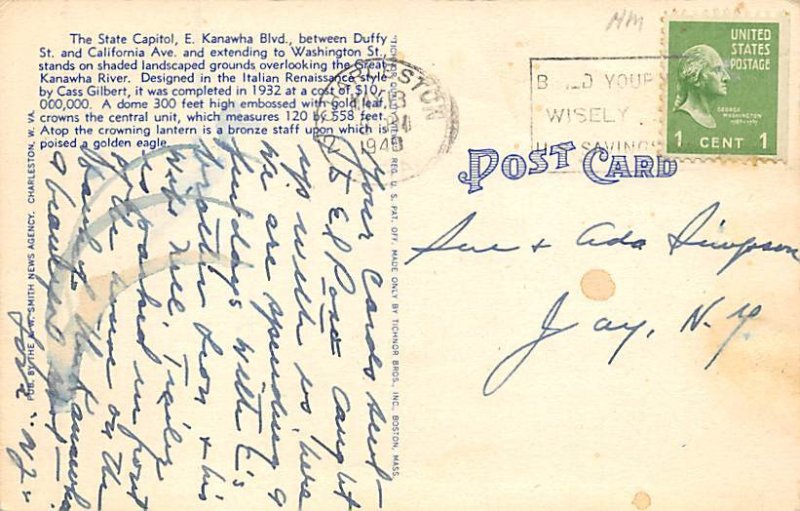 The State Capitol, E. Kanawha Blvd., between Duffy
St. and California Ave. and extending to Washington St.,
stands on shaded landscaped grounds overlooking the Great
Kanawha River. Designed in the Italian Renaissance style
by Cass Gilbert, it was completed in 1932 at a cost of $10,-
000,000. A dome 300 feet high embossed with gold leaf,
crowns the central unit, which measures 120 by 558 feet.
Atop the crowning lantern is a bronze staff upon which is
poised a golden eagle.
PUB. BY THE A. W. SMITH NEWS AGENCY, CHARLESTON, W. VA.
REG. U. S. PAT. OFF. MADE ONLY BY TICHNOR BROS., INC., BOSTON, MASS.
MM
YOUR
WISELY
SAVINGS
UNITED
STATES
POSTAGE
GEORGE
WASHINGTON
1 CENT 1
POST CARD
Sue & Ada Simpson
Jay, N.Y.
Your cards sent
to El Paso caught
up with us here
we are spending a
few days with E's
brother Leon & his
wife Nell. Trailer
is parked in front
of the house on the
bank of the Kanawha
a beautiful spot
Love